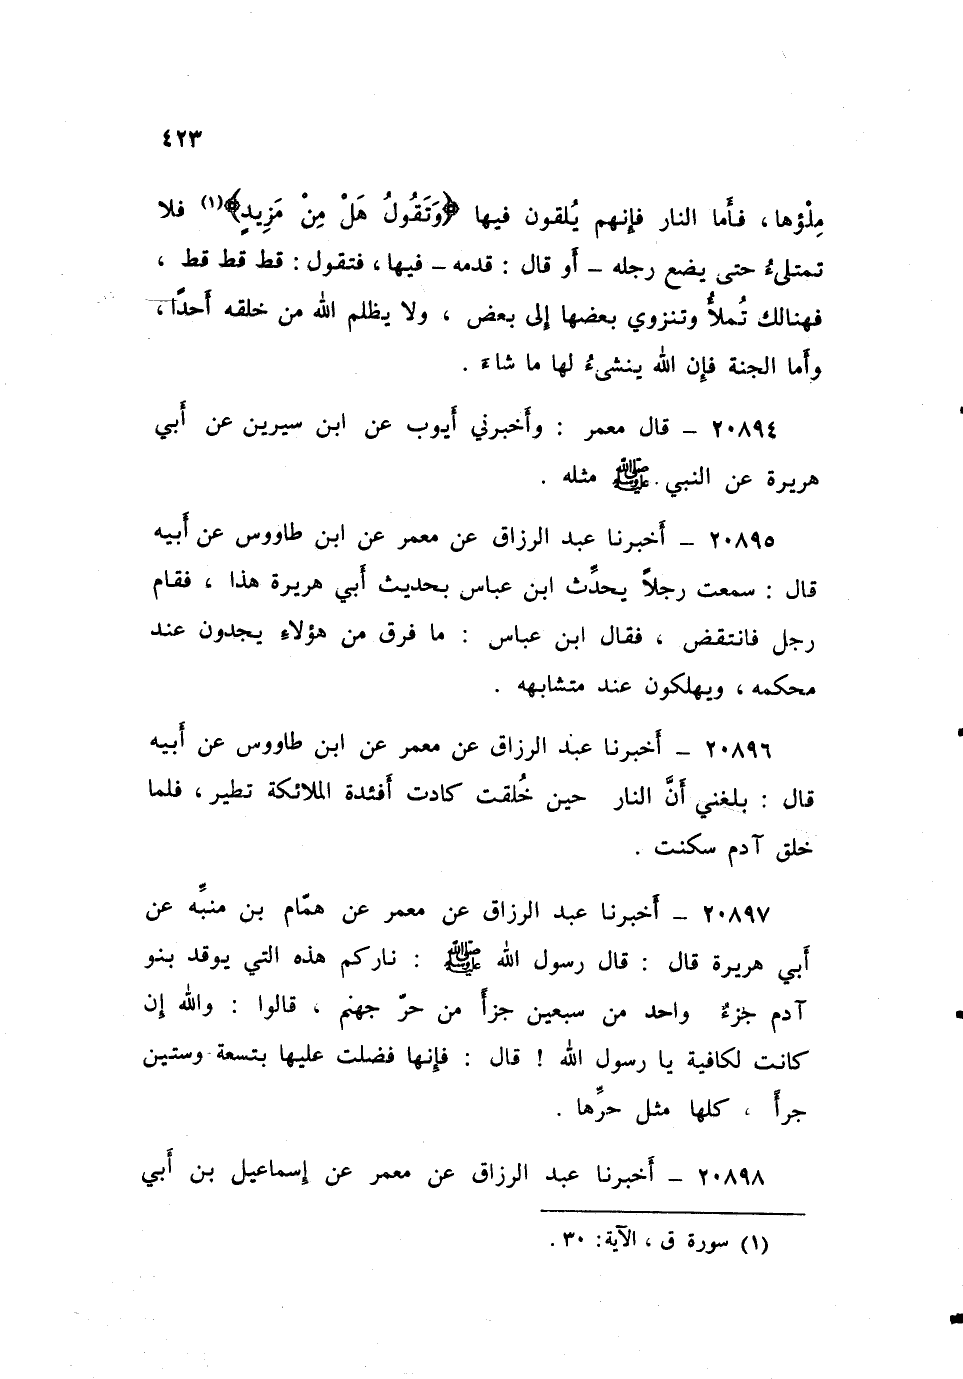 ٤٢٣
مِلْؤها، فأَما النار فإنهم يُلقون فيها ﴿وَتَقُولُ هَلْ مِنْ مَزِيدٍ﴾(١) فلا
تمتلىءُ حتى يضع رجله – أَو قال : قدمه – فيها، فتقول : قط قط قط ،
فهنالك تُملأُ وتنزوي بعضها إلى بعض ، ولا يظلم الله من خلقه أَحدًا،
وأَما الجنة فإن الله ينشىءُ لها ما شاءَ .
٢٠٨٩٤ – قال معمر : وأَخبرني أَيوب عن ابن سيرين عن أَبي
هريرة عن النبي ﷺ مثله .
٢٠٨٩٥ – أَخبرنا عبد الرزاق عن معمر عن ابن طاووس عن أَبيه
قال : سمعت رجلاً يحدِّث ابن عباس بحديث أَبي هريرة هذا ، فقام
رجل فانتقض ، فقال ابن عباس : ما فرق من هؤلاءِ يجدون عند
محكمه ، ويهلكون عند متشابهه .
٢٠٨٩٦ – أَخبرنا عبد الرزاق عن معمر عن ابن طاووس عن أَبيه
قال : بلغني أَنَّ النار حين خُلقت كادت أَفئدة الملائكة تطير ، فلما
خلق آدم سكنت .
٢٠٨٩٧ – أَخبرنا عبد الرزاق عن معمر عن همّام بن منبِّه عن
أَبي هريرة قال : قال رسول الله ﷺ : ناركم هذه التي يوقد بنو
آدم جزءٌ واحد من سبعين جزأً من حرّ جهنم ، قالوا : والله إن
كانت لكافية يا رسول الله ! قال : فإنها فضلت عليها بتسعة وستين
جرأً ، كلها مثل حرِّها .
٢٠٨٩٨ – أَخبرنا عبد الرزاق عن معمر عن إسماعيل بن أَبي
(١) سورة ق ، الآية: ٣٠ .